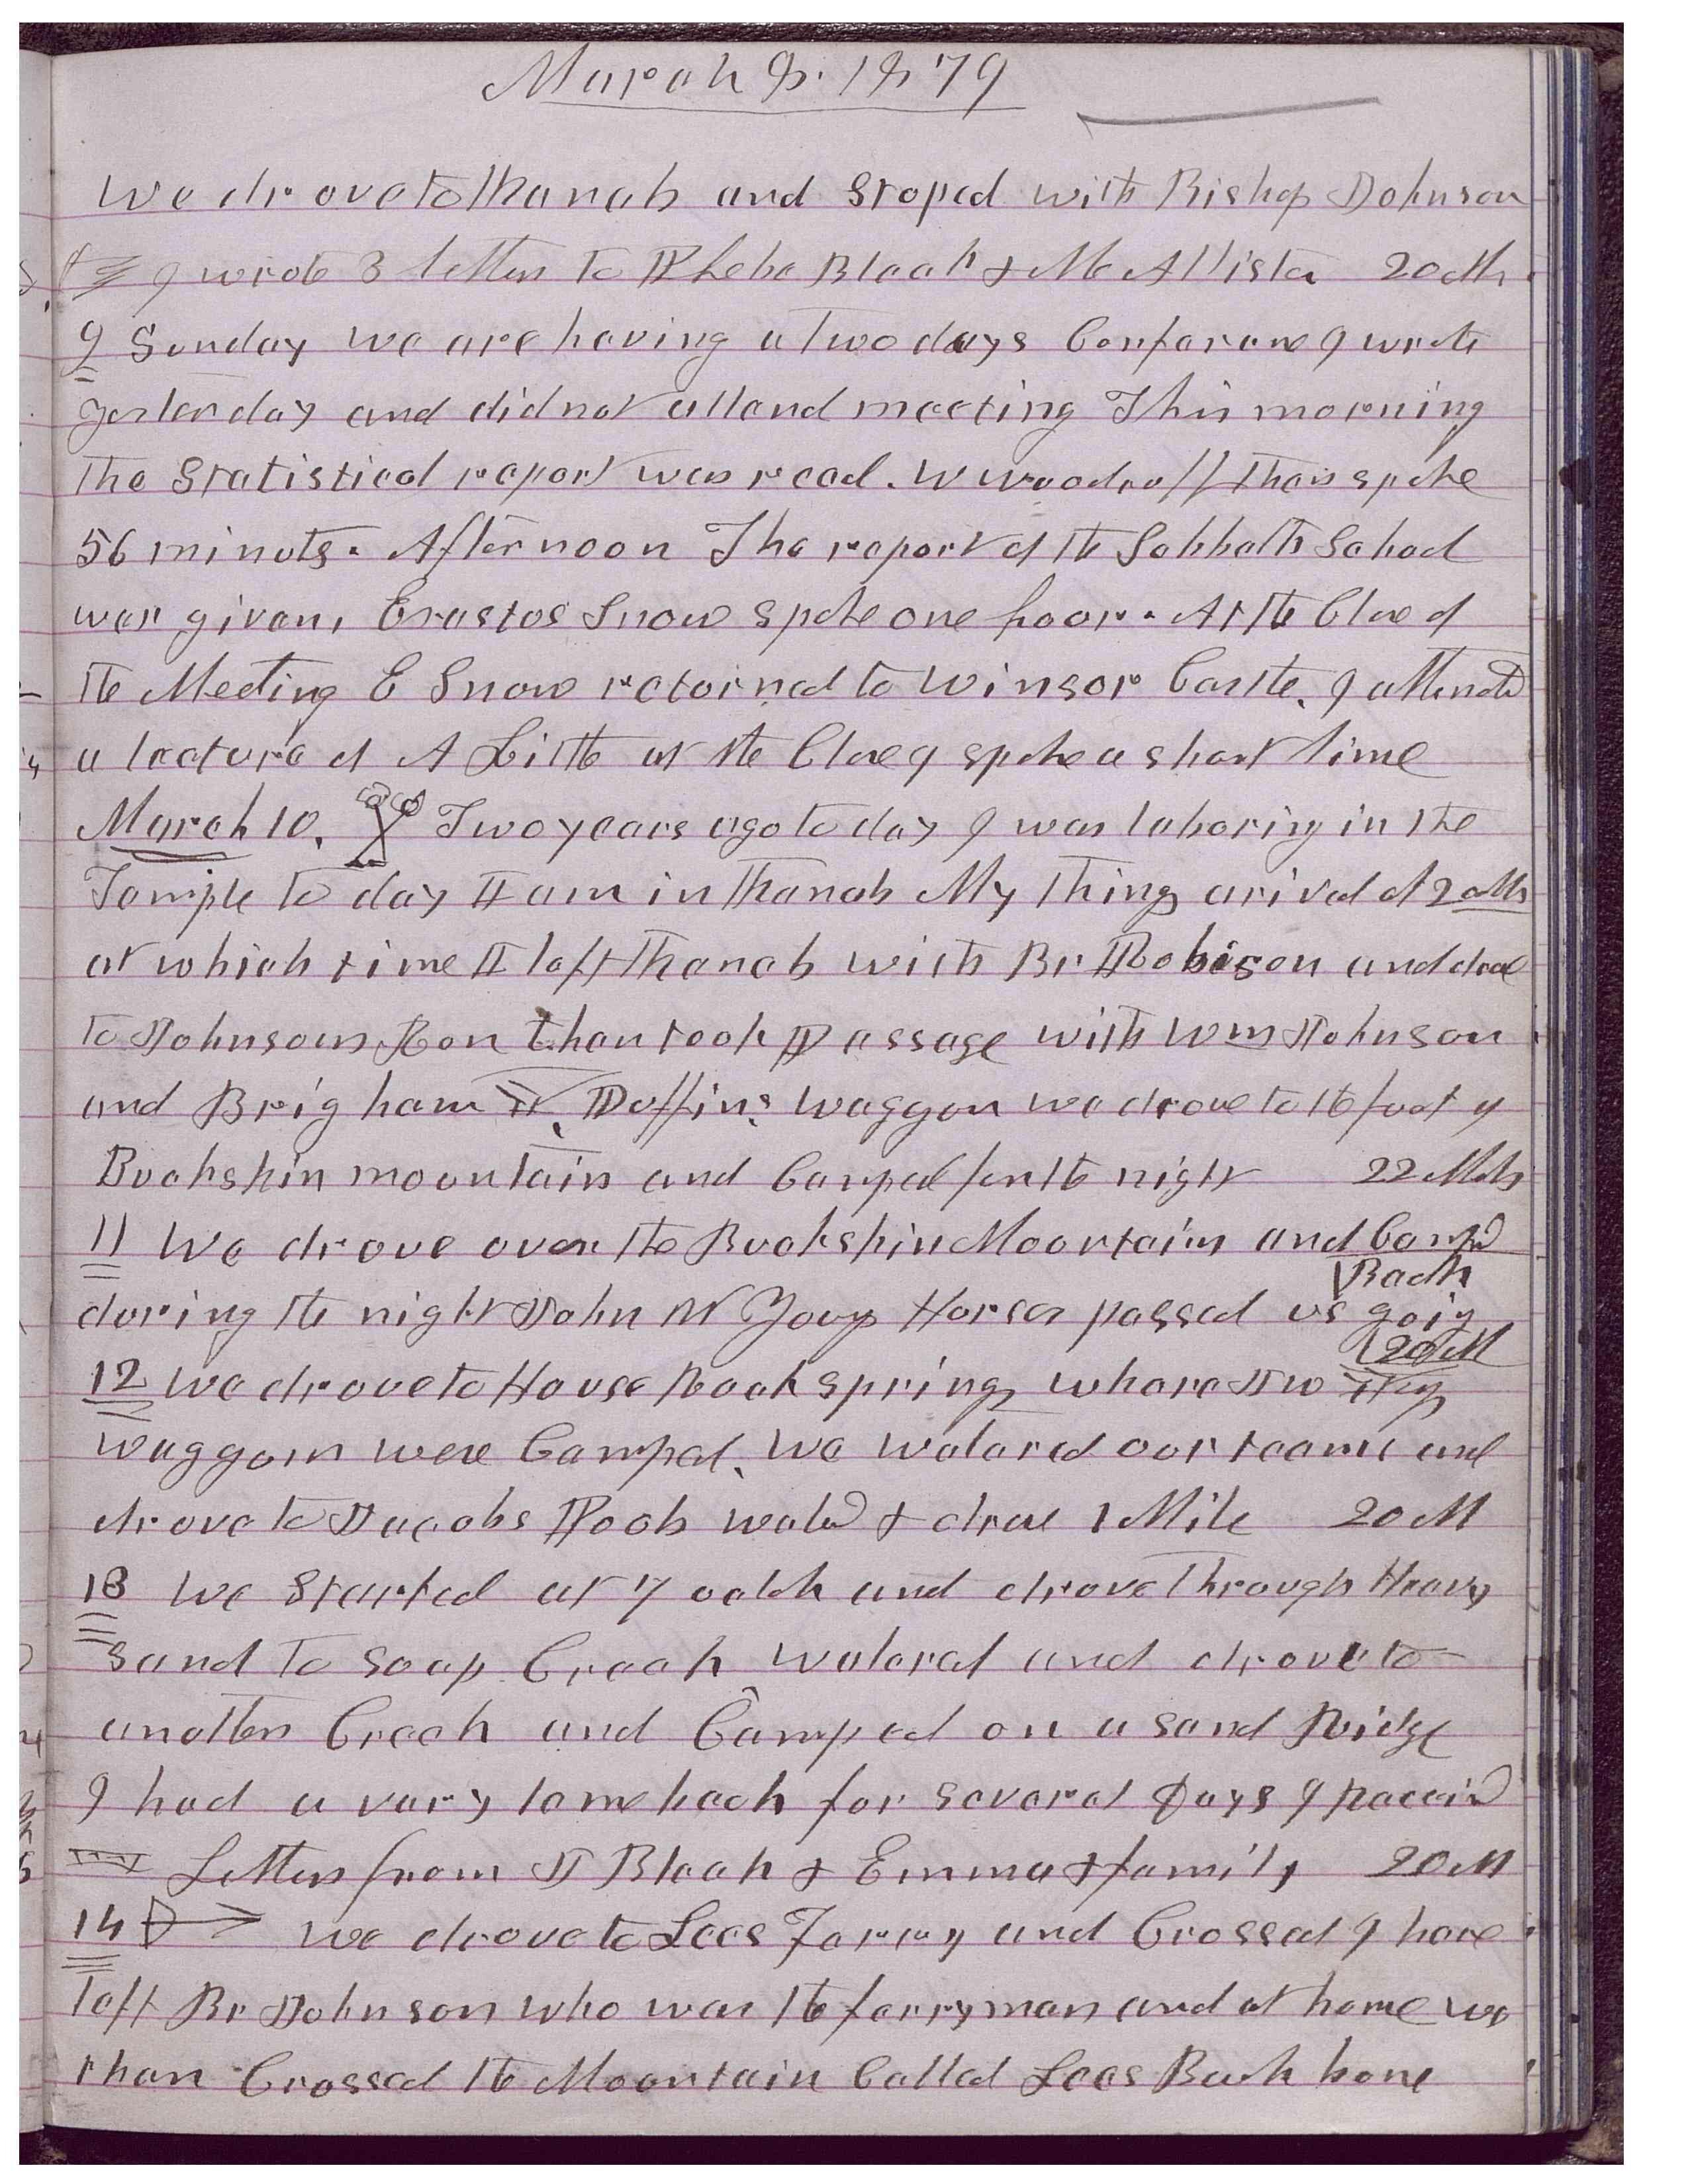 March 8. 1879
We drove to Kanab and stoped with Bishop Johnson
I wrote 3 letters to Phebe Bleak & McAllister 20 Mls
9 Sunday we are having a two days Conference I wrote
yesterday and did not attend meeting This morning
the Statistical report was read. W Woodruff then spoke
56 minuts. Afternoon The report of the Sabbath School
was given, Erastus Snow spoke one hour. At the Close of
the Meeting E Snow returned to Winsor Castle. I attended
a lecture of A Little at the Close I spoke a short time
March 10. Two years ago to day I was laboring in the
Temple to day I am in Kanab My things arived at 2 oclk
at which time I left Kanab with Br Robison and drove
to Johnsons Run then took Passage with Wm Johnson
and Brigham Y. Duffin's waggon we drove to the foot of
Buckskin mountain and Camped for the night 22 Mls
11 We drove over the Buckskin Mountain and Campd
Back
during the night John W Youngs Horses passed us going
20 M
12 We drove to House Rock springs where J W Youngs
waggons were Camped. We watered our teams and
drove to Jacobs Pools waterd & drove 1 Mile 20 M
13 We started at 7 oclok and drove through Heavy
sand to Soap Creek watered and drove to
another Creek and Camped on a sand Ridge
I had a very lame back for several Days I receivd
Letters from J Bleak & Emma & family 20 M
14 We drove to Lees Ferry and Crossed I here
left Br Johnson who was the ferryman and at home we
then Crossed the Mountain Called Lees Back bone